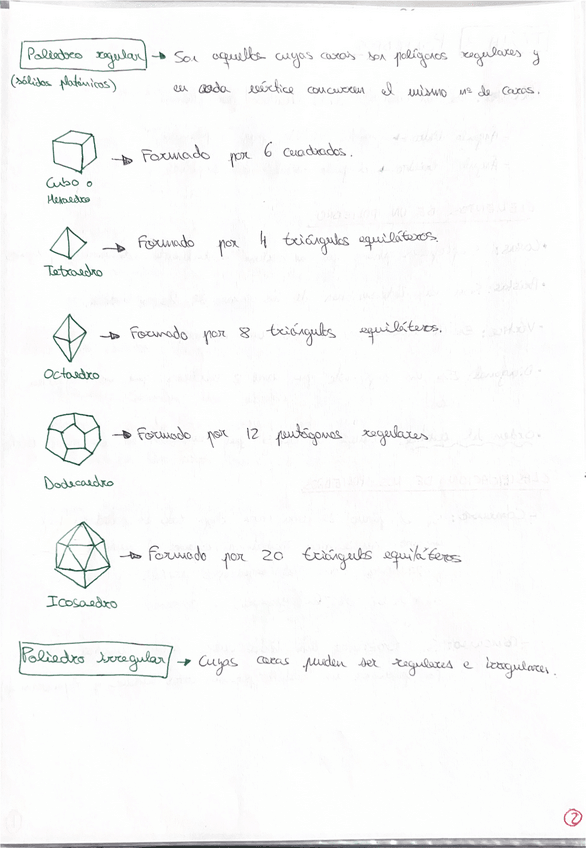 Poliedro regular → Son aquellos cuyas caras son polígonos regulares y
(sólidos platónicos) en cada vértice concurren el mismo nº de caras.
→ Formado por 6 cuadrados.
Cubo o
Hexaedro
→ Formado por 4 triángulos equiláteros.
Tetraedro
→ Formado por 8 triángulos equiláteros.
Octaedro
→ Formado por 12 pentágonos regulares
Dodecaedro
→ Formado por 20 triángulos equiláteros
Icosaedro
Poliedro irregular → Cuyas caras pueden ser regulares e irregulares.
2